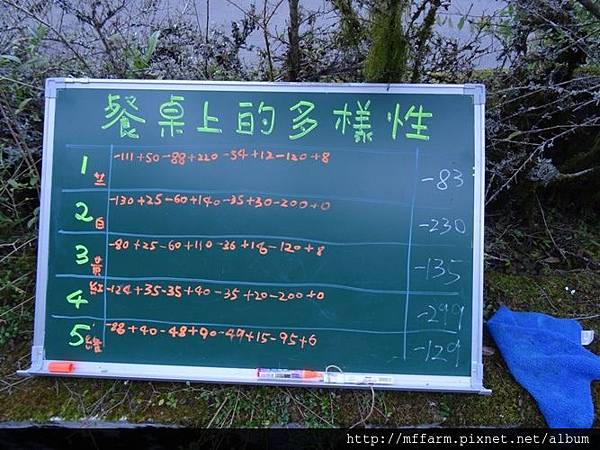 餐桌上的多樣性
1 -111+50-88+220-54+12-120+8 -83
2 白 -130+25-60+140-35+30-200+0 -230
3 黃 -80+25-60+110-36+16-120+8 -135
4 紅 -124+35-35+40-35+20-200+0 -299
5 綠 -88+40-48+90-49+15-95+6 -129
http://mffarm.pixnet.net/album